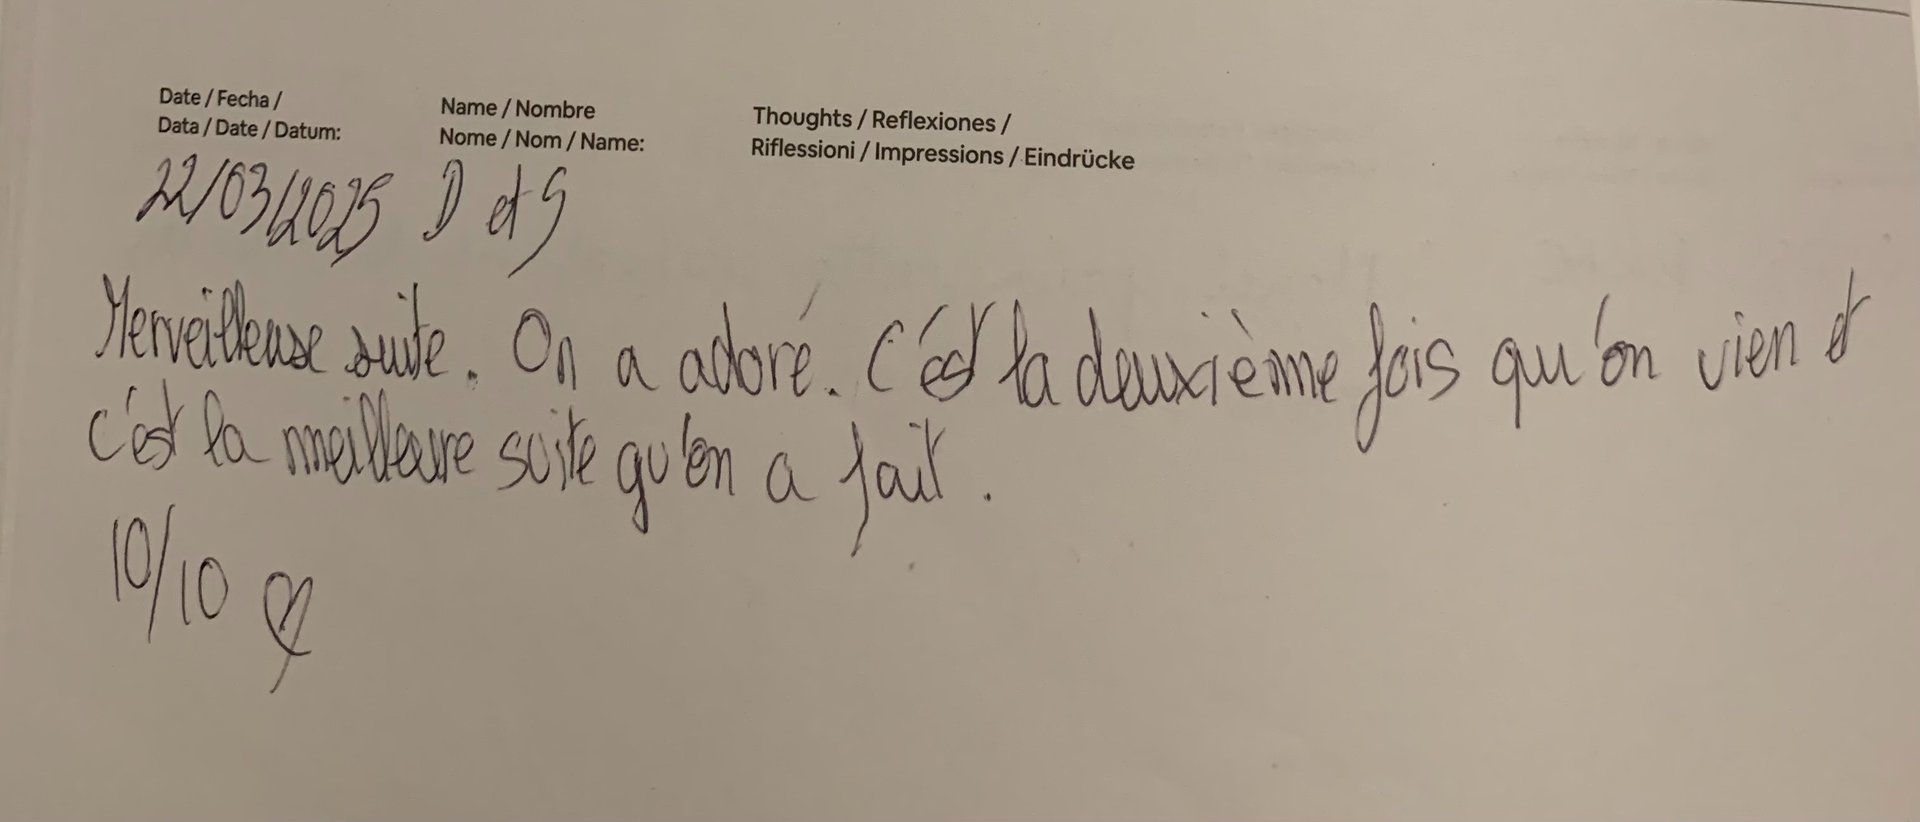 Date / Fecha /
Data / Date / Datum:
Name / Nombre
Nome / Nom / Name:
Thoughts / Reflexiones /
Riflessioni / Impressions / Eindrücke
22/03/2025 D et S
Merveilleuse suite. On a adoré. C'est la deuxième fois qu'on vien et
c'est la meilleure suite qu'on a fait.
10/10 ♡